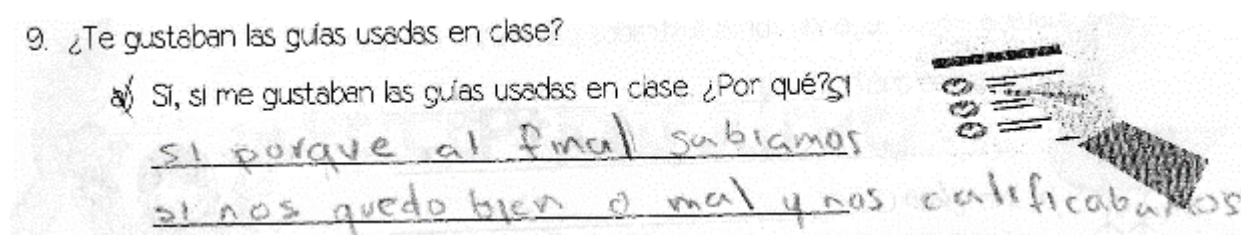 9. ¿Te gustaban las guías usadas en clase?
a) Sí, si me gustaban las guías usadas en clase. ¿Por qué? SI
si porque al final sabiamos
si nos quedo bien o mal y nos calificabamos